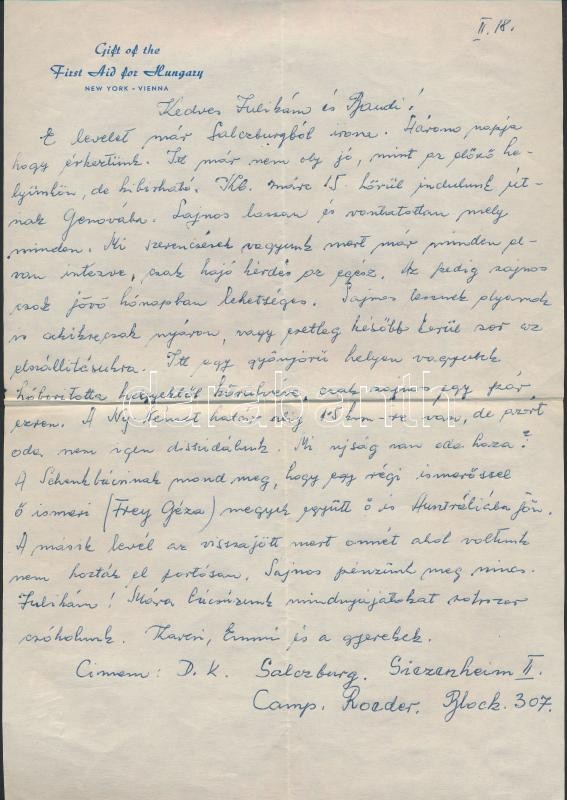 II. 18.
Gift of the
First Aid for Hungary
NEW YORK - VIENNA
Kedves Julikám és Bandi!
E levelet már Salczburgból irom. Három napja
hogy érkeztünk. Itt már nem oly jó, mint az előző he-
lyünkön, de kibirható. Kb. márc 15. körül indulunk út-
nak Genovába. Sajnos lassan és vontatottan mely
minden. Mi szerencsések vagyunk mert már minden el-
van intézve, csak hajó kérdés az egész. Az pedig sajnos
csak jövő hónapban lehetséges. Sajnos lesznek olyanok
is akikre csak nyáron, vagy esetleg később kerül sor az
elszállitásukra. Itt egy gyönyörű helyen vagyunk
hóboritotta hegyektől körülvéve, csak sajnos egy pár
ezren. A Ny. Német határ 1.5 km-re van, de azért
oda nem igen disszidálunk. Mi ujság van oda haza?
A Schenk bácsinak mond meg, hogy egy régi ismerőssel
ő ismeri (Frey Géza) megyek együtt ő is Ausztráliába jön.
A másik levél az visszajött mert onnét ahol voltunk
nem hozták el portósan. Sajnos pénzünk meg nincs.
Julikám! Mára búcsúzunk mindnyájatokat sokszor
csókolunk. Karcsi, Emmi és a gyerekek.
Cimem: D. K. Salczburg. Siezenheim II.
Camp. Roeder. Block. 307.
darabanth